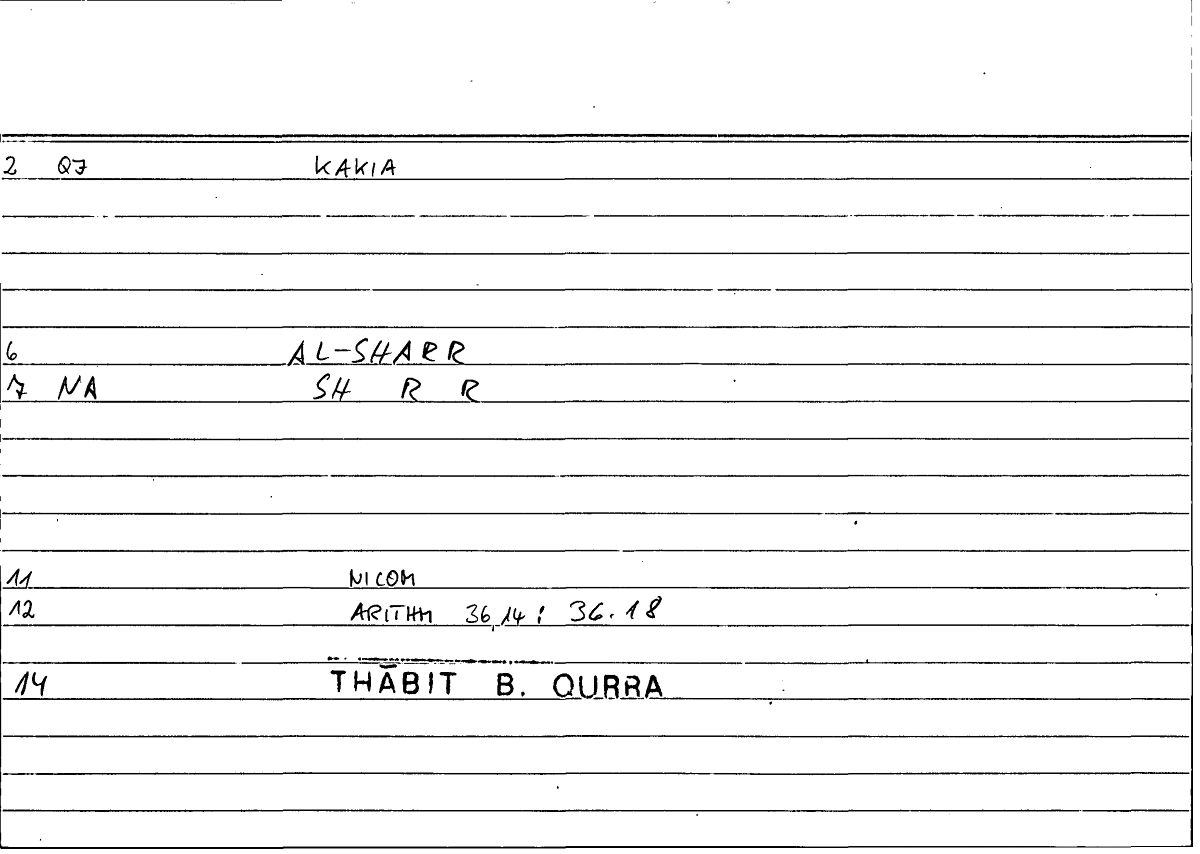 2 QJ KAKIA
6 AL-SHARR
7 NA SH R R
11 NICOM
12 ARITHM 36,14: 36.18
14 THĀBIT B. QURRA